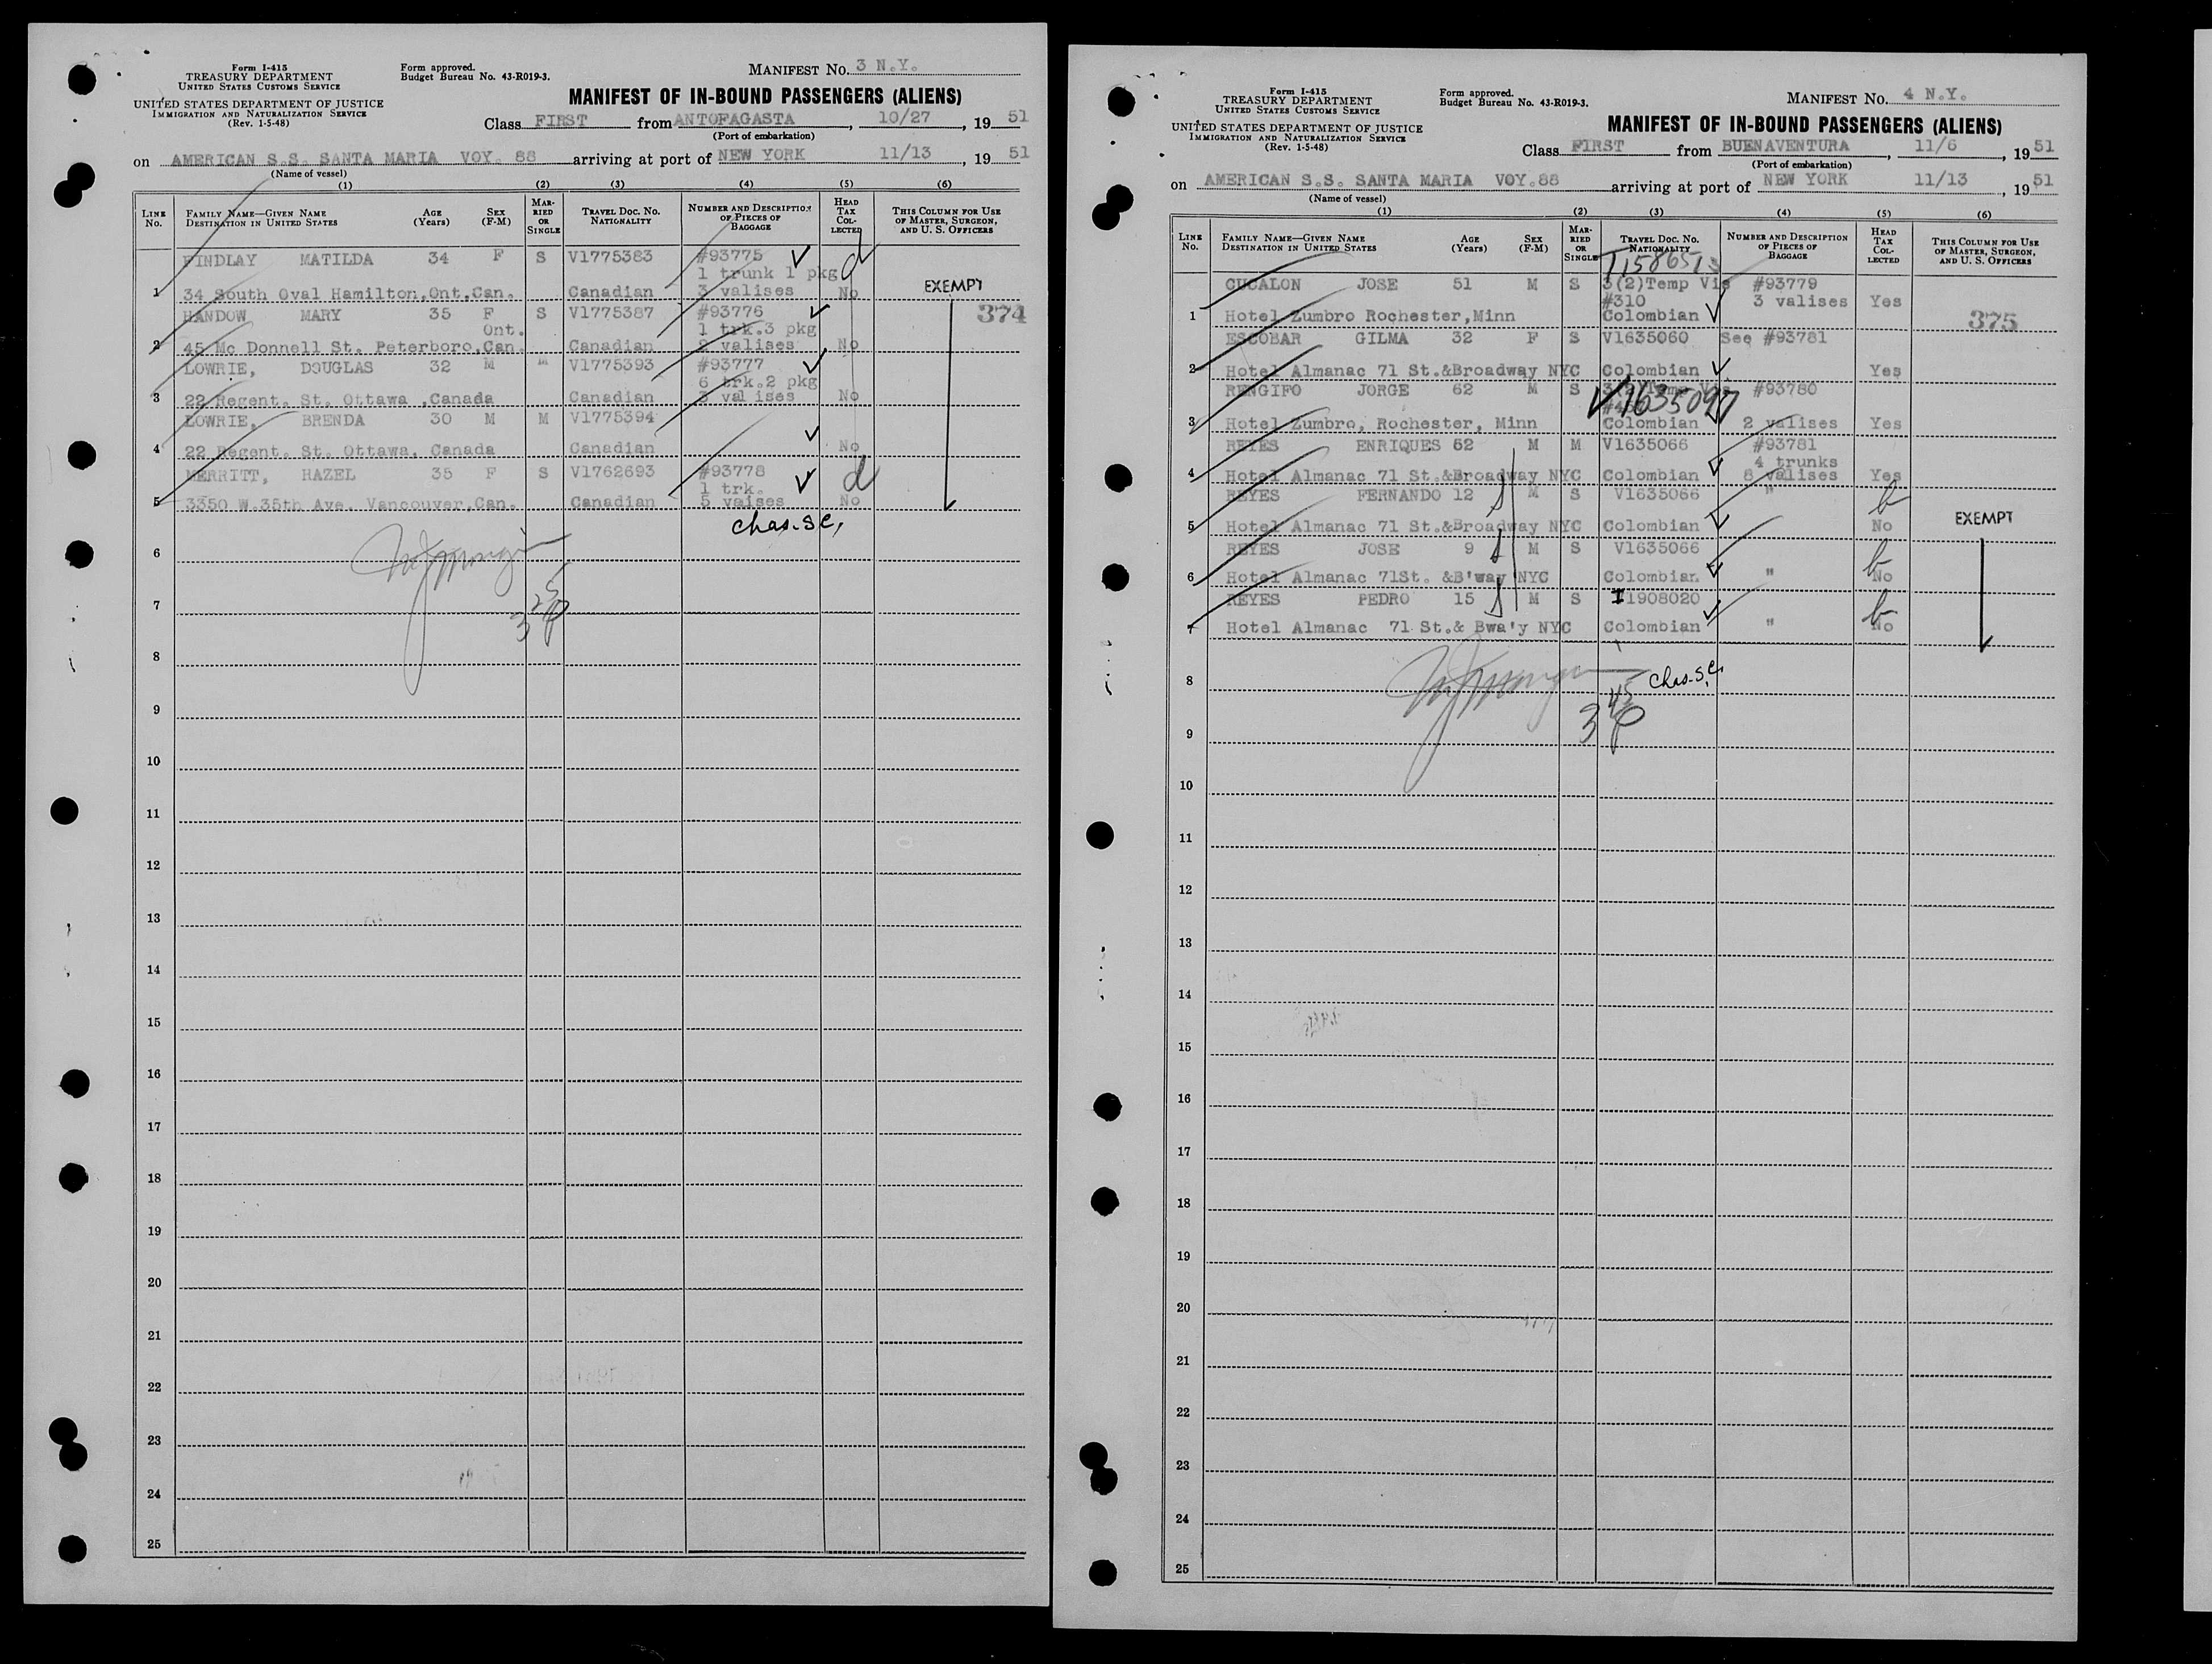 Form I-415
TREASURY DEPARTMENT
UNITED STATES CUSTOMS SERVICE
UNITED STATES DEPARTMENT OF JUSTICE
IMMIGRATION AND NATURALIZATION SERVICE
(Rev. 1-5-48)
Form approved.
Budget Bureau No. 43-R019-3.
MANIFEST No. 3 N.Y.
MANIFEST OF IN-BOUND PASSENGERS (ALIENS)
Class FIRST from ANTOFAGASTA, 10/27, 19 51
(Port of embarkation)
on AMERICAN S.S. SANTA MARIA VOY. 88 arriving at port of NEW YORK 11/13, 19 51
(Name of vessel)
(1) (2) (3) (4) (5) (6)
LINE No. FAMILY NAME—GIVEN NAME DESTINATION IN UNITED STATES AGE (Years) SEX (F-M) MARRIED OR SINGLE TRAVEL DOC. No. NATIONALITY NUMBER AND DESCRIPTION OF PIECES OF BAGGAGE HEAD TAX COLLECTED THIS COLUMN FOR USE OF MASTER, SURGEON, AND U. S. OFFICERS
FINDLAY MATILDA 34 F S V1775383 #93775
1 trunk 1 pkg d
1 34 South Oval Hamilton,Ont,Can. Canadian 3 valises No EXEMPT
HANDOW MARY 35 F S V1775387 #93776 374
Ont. 1 trk.3 pkg
2 45 Mc Donnell St. Peterboro,Can. Canadian 2 valises No
LOWRIE, DOUGLAS 32 M M V1775393 #93777
6 trk.2 pkg
3 22 Regent. St. Ottawa ,Canada Canadian 3 val ises No
LOWRIE, BRENDA 30 M M V1775394
4 22 Regent. St. Ottawa, Canada Canadian No
MERRITT, HAZEL 35 F S V1762693 #93778
1 trk. d
5 3350 W.35th Ave. Vancouver,Can. Canadian 5 vaises No
chas. S.C.
6
25
7
3
8
9
10
11
12
13
14
15
16
17
18
19
20
21
22
23
24
25
Form I-415
TREASURY DEPARTMENT
UNITED STATES CUSTOMS SERVICE
UNITED STATES DEPARTMENT OF JUSTICE
IMMIGRATION AND NATURALIZATION SERVICE
(Rev. 1-5-48)
Form approved.
Budget Bureau No. 43-R019-3.
MANIFEST No. 4 N.Y.
MANIFEST OF IN-BOUND PASSENGERS (ALIENS)
Class FIRST from BUENAVENTURA, 11/6, 19 51
(Port of embarkation)
on AMERICAN S.S. SANTA MARIA VOY.88 arriving at port of NEW YORK 11/13, 19 51
(Name of vessel)
(1) (2) (3) (4) (5) (6)
LINE No. FAMILY NAME—GIVEN NAME DESTINATION IN UNITED STATES AGE (Years) SEX (F-M) MARRIED OR SINGLE TRAVEL DOC. No. NATIONALITY NUMBER AND DESCRIPTION OF PIECES OF BAGGAGE HEAD TAX COLLECTED THIS COLUMN FOR USE OF MASTER, SURGEON, AND U. S. OFFICERS
T1586513
CUCALON JOSE 51 M S 3(2)Temp Vis #93779
#310 3 valises Yes
1 Hotel Zumbro Rochester,Minn Colombian 375
ESCOBAR GILMA 32 F S V1635060 See #93781
2 Hotel Almanac 71 St.&Broadway NYC Colombian Yes
RENGIFO JORGE 62 M S 3(2)Temp Vis #93780
V1635097
3 Hotel Zumbro, Rochester, Minn Colombian 2 valises Yes
REYES ENRIQUES 52 M M V1635066 #93781
4 trunks
4 Hotel Almanac 71 St.&Broadway NYC Colombian 8 valises Yes
REYES FERNANDO 12 M S V1635066 " b
5 Hotel Almanac 71 St.&Broadway NYC Colombian No EXEMPT
REYES JOSE 9 M S V1635066 b
6 Hotel Almanac 71St. &B'way NYC Colombian " No
REYES PEDRO 15 M S I1908020 b
7 Hotel Almanac 71 St.& Bwa'y NYC Colombian " No
chas. S.C.
8
45
3
9
10
11
12
13
14
15
16
17
18
19
20
21
22
23
24
25